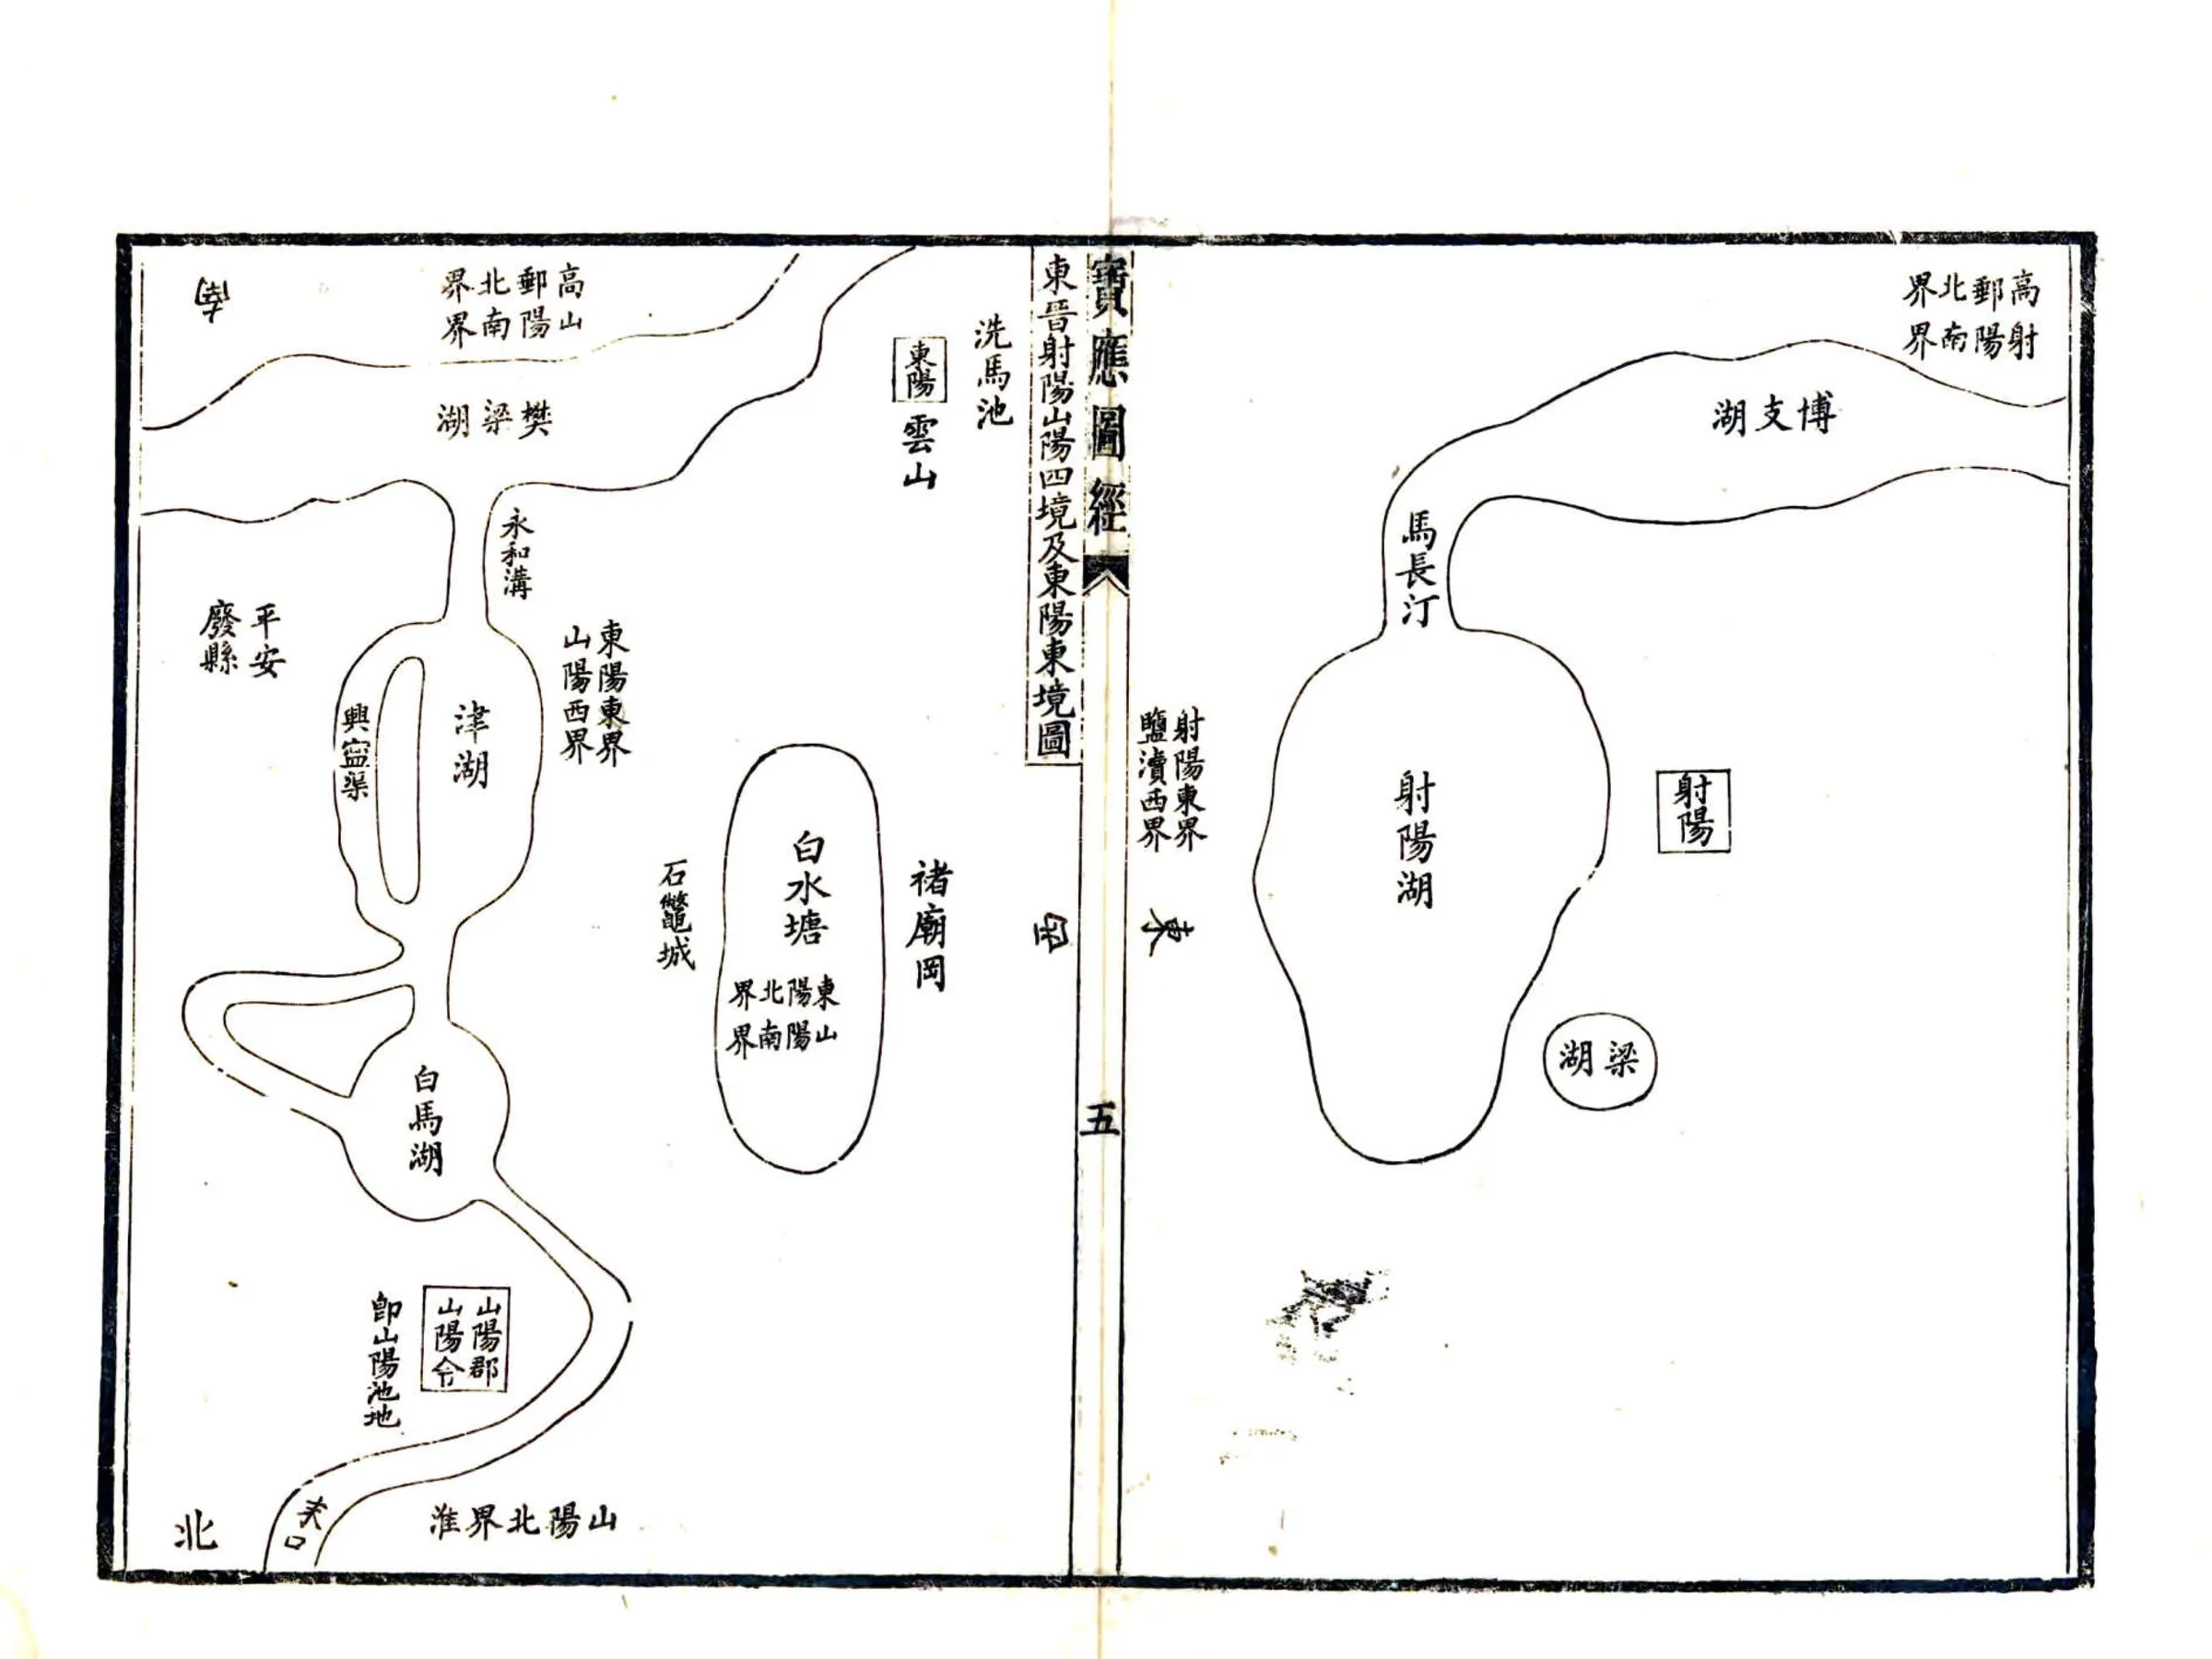 高郵北界
射陽南界
博支湖
馬長汀
射陽湖
射陽
梁湖
射陽東界
鹽瀆西界
東
寶應圖經
五
東晉射陽山陽四境及東陽東境圖
西
洗馬池
東陽
雲山
褚廟岡
白水塘
東陽北界
山陽南界
石鼈城
高郵北界
山陽南界
南
樊梁湖
永和溝
東陽東界
山陽西界
平安
廢縣
津湖
興寍渠
白馬湖
山陽郡
山陽令
卽山陽池地
山陽北界淮
末口
北